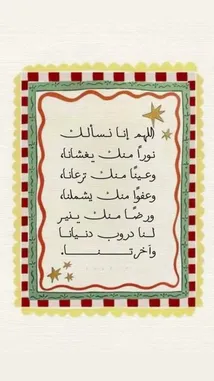 اللهم إنا نسألك
نورًا منك يغشانا،
وعينًا منك ترعانا،
وعفوًا منك يشملنا،
ورضًا منك ينير
لنا دروب دنيانا
وآخرتنا.